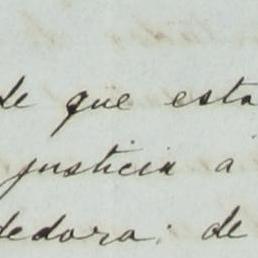 de que esta
justicia a
dedora; de